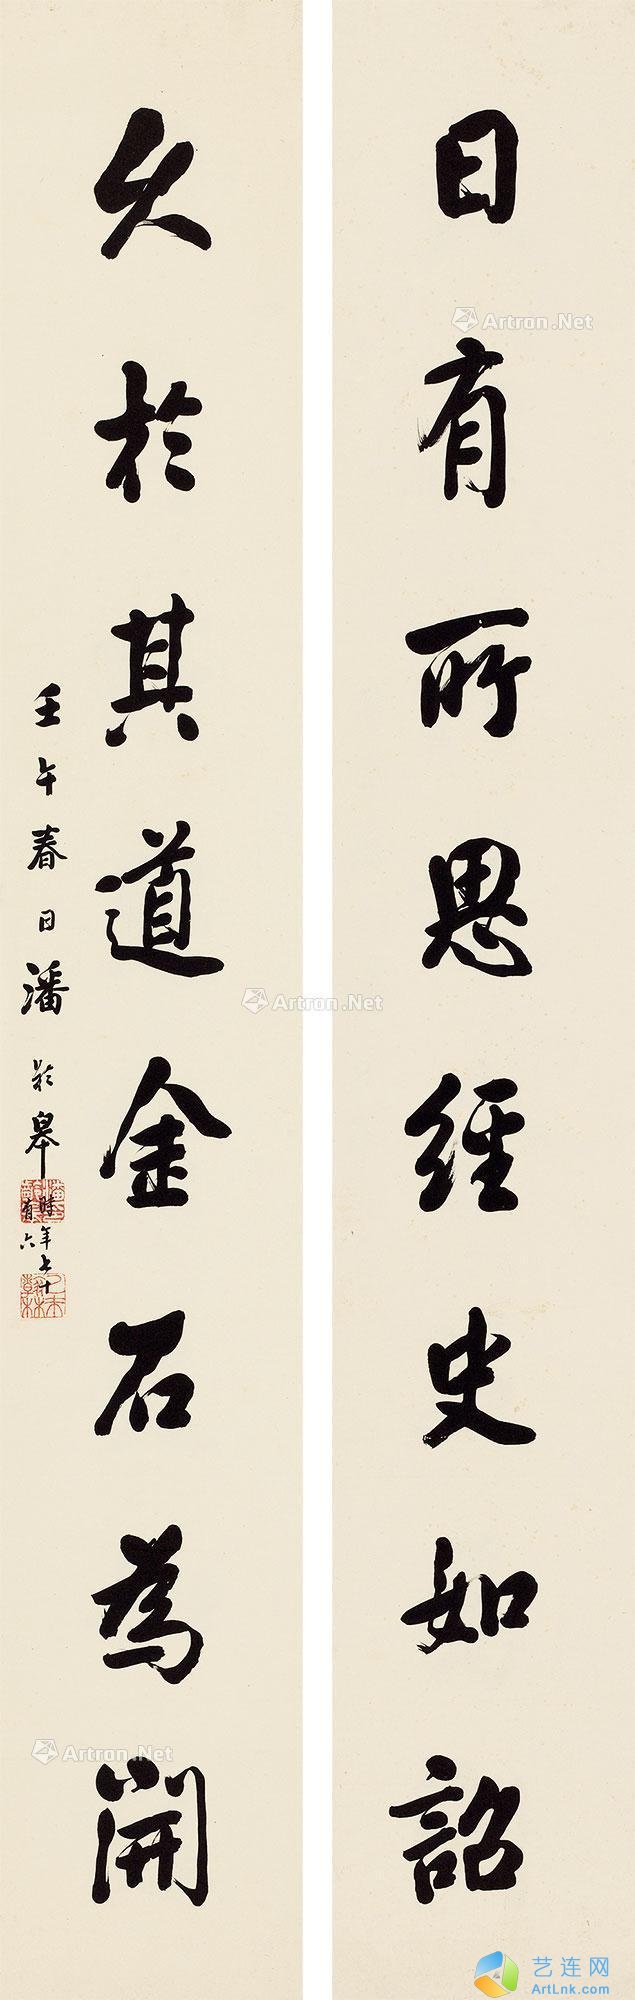 日有所思經史如詔
久於其道金石為開
壬午春日潘齡皋時年七十有六
Artron.Net
Artron.Net
Artron.Net
艺连网
ArtLnk.com